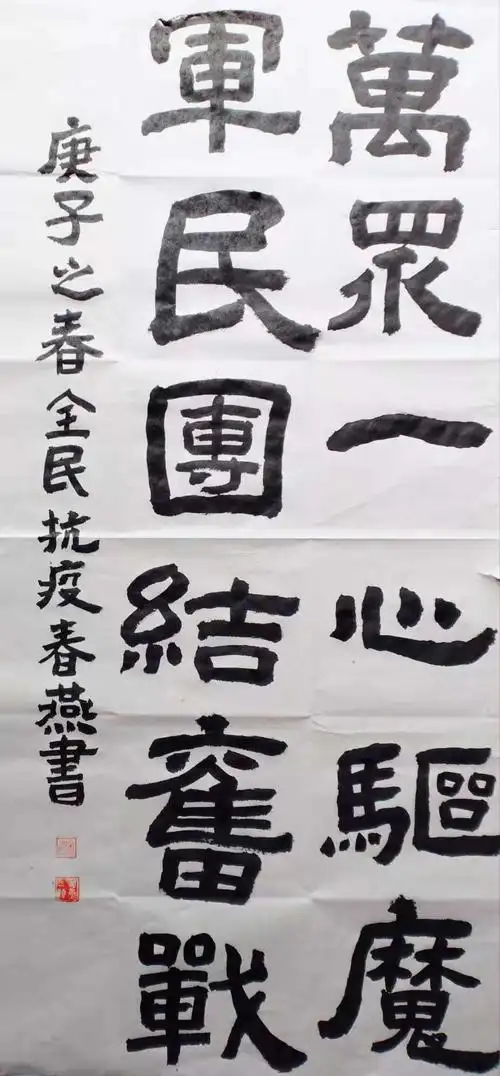 萬眾一心驅魔
軍民團結奮戰
庚子之春全民抗疫春燕書